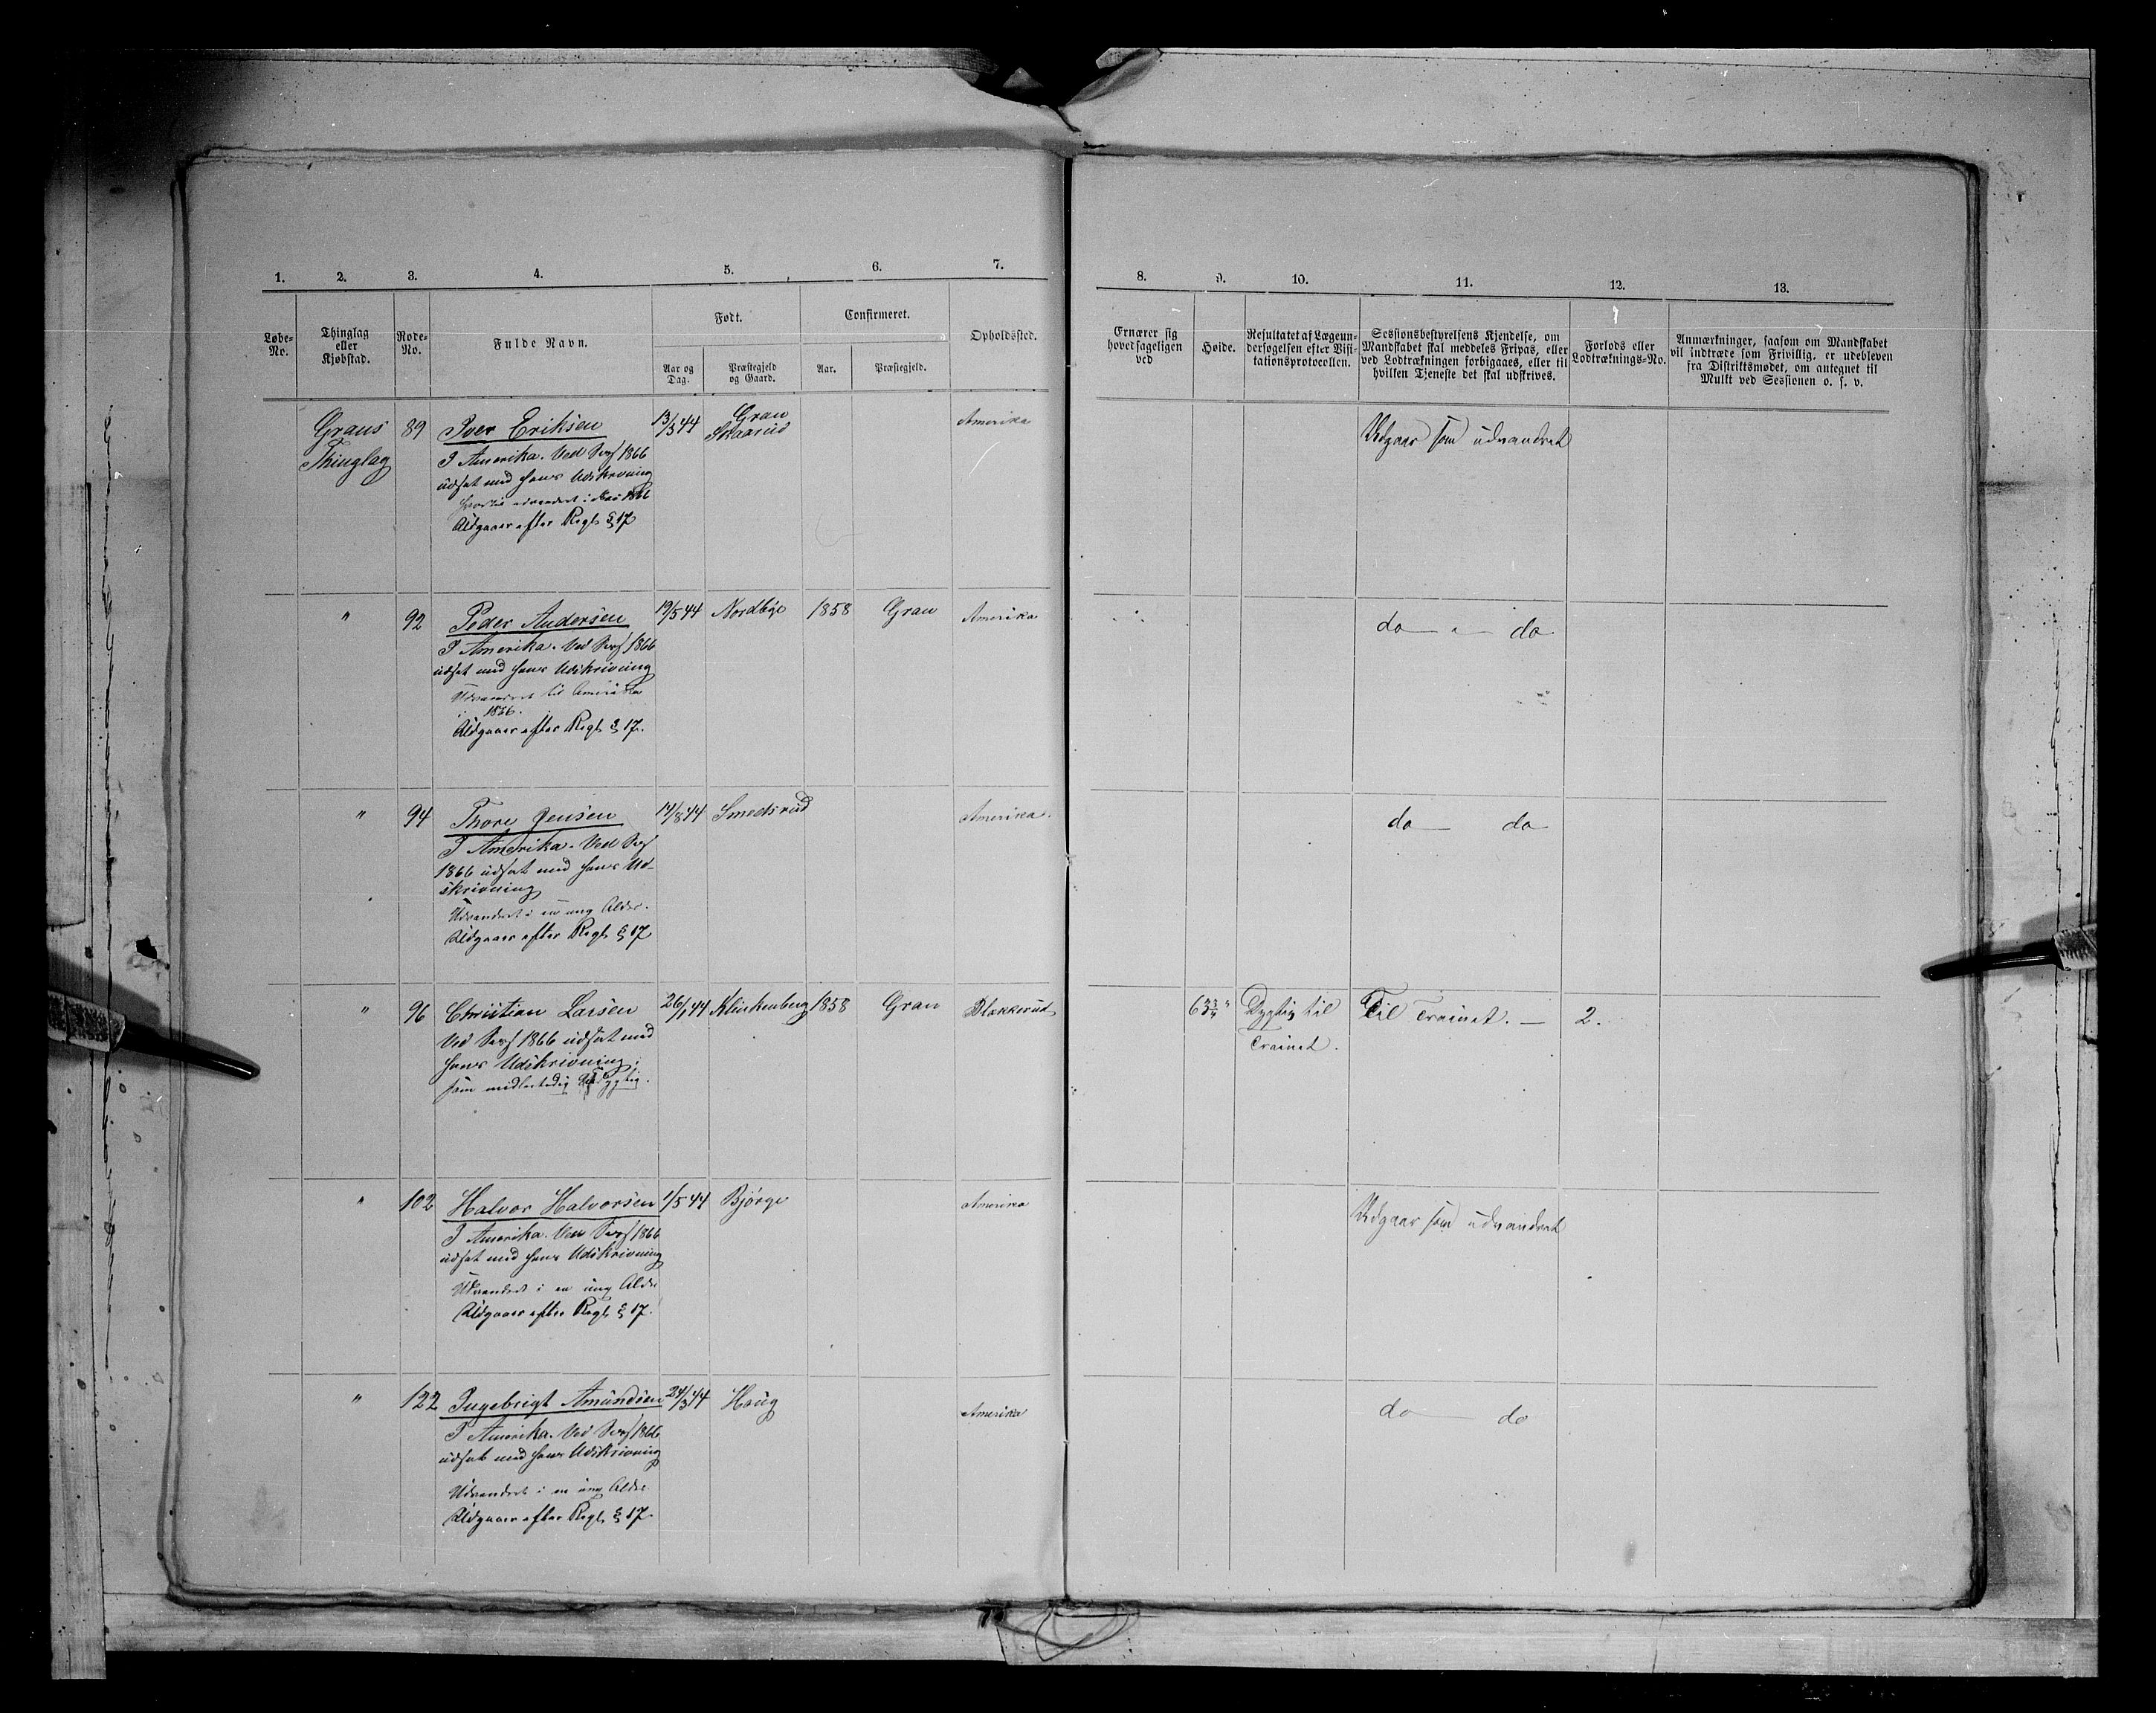 1. 2. 3. 4. 5. 6. 7. 8. 9. 10. 11. 12. 13.
Løbe-
No.
Thinglag
eller
Kjøbstad.
Rode-
No.
Fulde Navn.
Født.
Aar og
Dag.
Præstegjeld
og Gaard.
Confirmeret.
Aar.
Præstegjeld.
Opholdssted.
Ernærer sig
hovedsageligen
ved
Høide.
Resultatet af Lægeun-
dersøgelsen efter Visi-
tationsprotocollen.
Sessionsbestyrelsens Kjendelse, om
Mandskabet skal meddeles Fripas, eller
ved Lodtrækningen forbigaaes, eller til
hvilken Tjeneste det skal udskrives.
Forlods eller
Lodtræknings-No.
Anmærkninger, saasom om Mandskabet
vil indtræde som Frivillig, er udebleven
fra Distriktsmødet, om antegnet til
Mulkt ved Sessionen o. s. v.
Grans
Thinglag
89 Iver Eriksen 13/5 44 Gran
Skaarud
Amerika Udgaar som udvandret
I Amerika. Ved Sess 1866
udsat med hans Udskrivning
udvandret i 1866
Udgaar efter Regl. § 17
" 92 Peder Andersen 19/5 44 Nordbye 1858 Gran Amerika do " do
I Amerika. Ved Sess 1866
udsat med hans Udskrivning
Udvandret til Amerika
i 1856.
Udgaar efter Regl. § 17.
" 94 Thore Jensen 14/8 44 Smedsrud Amerika. do do
I Amerika. Ved Sess
1866 udsat med hans Ud-
skrivning
Udvandret i en ung Alder.
Udgaar efter Regl. § 17
" 96 Christian Larsen 26/1 44 Klinkenberg 1858 Gran Blakkerud 63 Dygtig til Til Trainet. — 2.
Trainet.
Ved Sess 1866 udsat med
hans Udskrivning,
som midlertidig
" 102 Halvor Halvorsen 1/5 44 Bjørge Amerika Udgaar som udvandret
I Amerika. Ved Sess 1866
udsat med hans Udskrivning
Udvandret i en ung Alder
Udgaar efter Regl. § 17.
" 122 Ingebrigt Amundsen 24/3 44 Haug Amerika do do
I Amerika. Ved Sess 1866
udsat med hans Udskrivning
Udvandret i en ung Alder
Udgaar efter Regl. § 17.